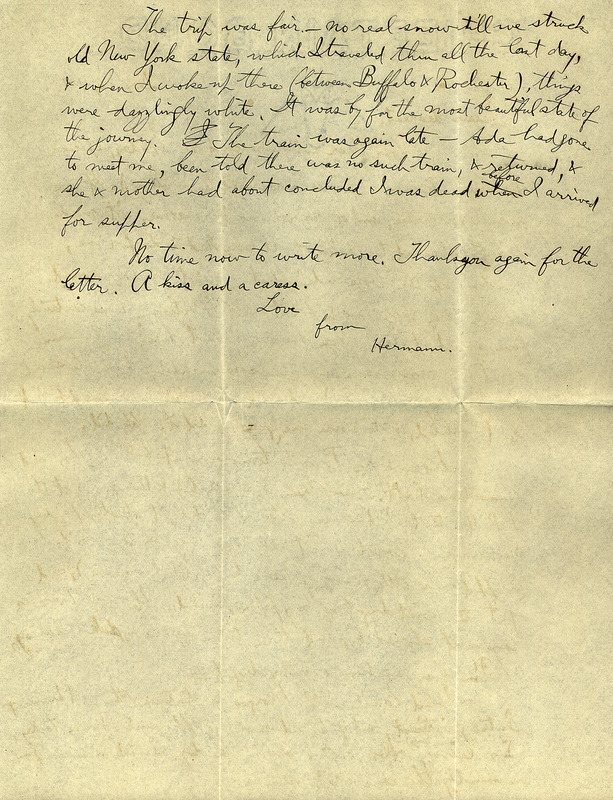 The trip was fair. – no real snow till we struck
old New York state, which I traveled thru all the last day,
& when I woke up there (between Buffalo & Rochester), things
were dazzlingly white. It was by far the most beautiful state of
the journey. The train was again late – Ada had gone
to meet me, been told there was no such train, & returned, &
she & mother had about concluded I was dead when before I arrived
for supper.
No time now to write more. Thank you again for the
letter. A kiss and a caress.
Love
from
Hermann.